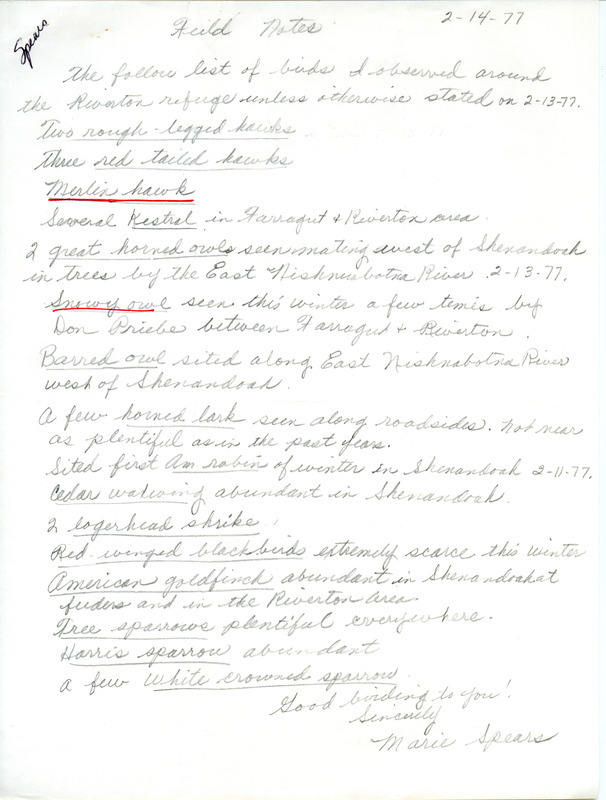 Spears
2-14-77
Feild Notes
The follow list of birds I observed around
the Riverton refuge unless otherwise stated on 2-13-77.
Two rough-legged hawks
Three red tailed hawks
Merlin hawk
Several Kestral in Farragut & Riverton area.
2 great horned owls seen mating west of Shenandoah
in trees by the East Nishnabotna River. 2-13-77.
Snowy owl seen this winter a few temis by
Don Priebe between Farragut & Riverton.
Barred owl sited along East Nishnabotna River
west of Shenandoah.
A few horned lark seen along roadsides. Not near
as plentiful as in the past years.
Sited first Am. robin of winter in Shenandoah 2-11-77.
Cedar waxwing abundant in Shenandoah.
2 logerhead shrike
Red-winged blackbirds extremely scarce this winter
American goldfinch abundant in Shenandoah at
feeders and in the Riverton area.
Tree sparrows plentiful everywhere.
Harris sparrow abundant
a few white crowned sparrow.
Good birding to you!
Sincerely
Marie Spears